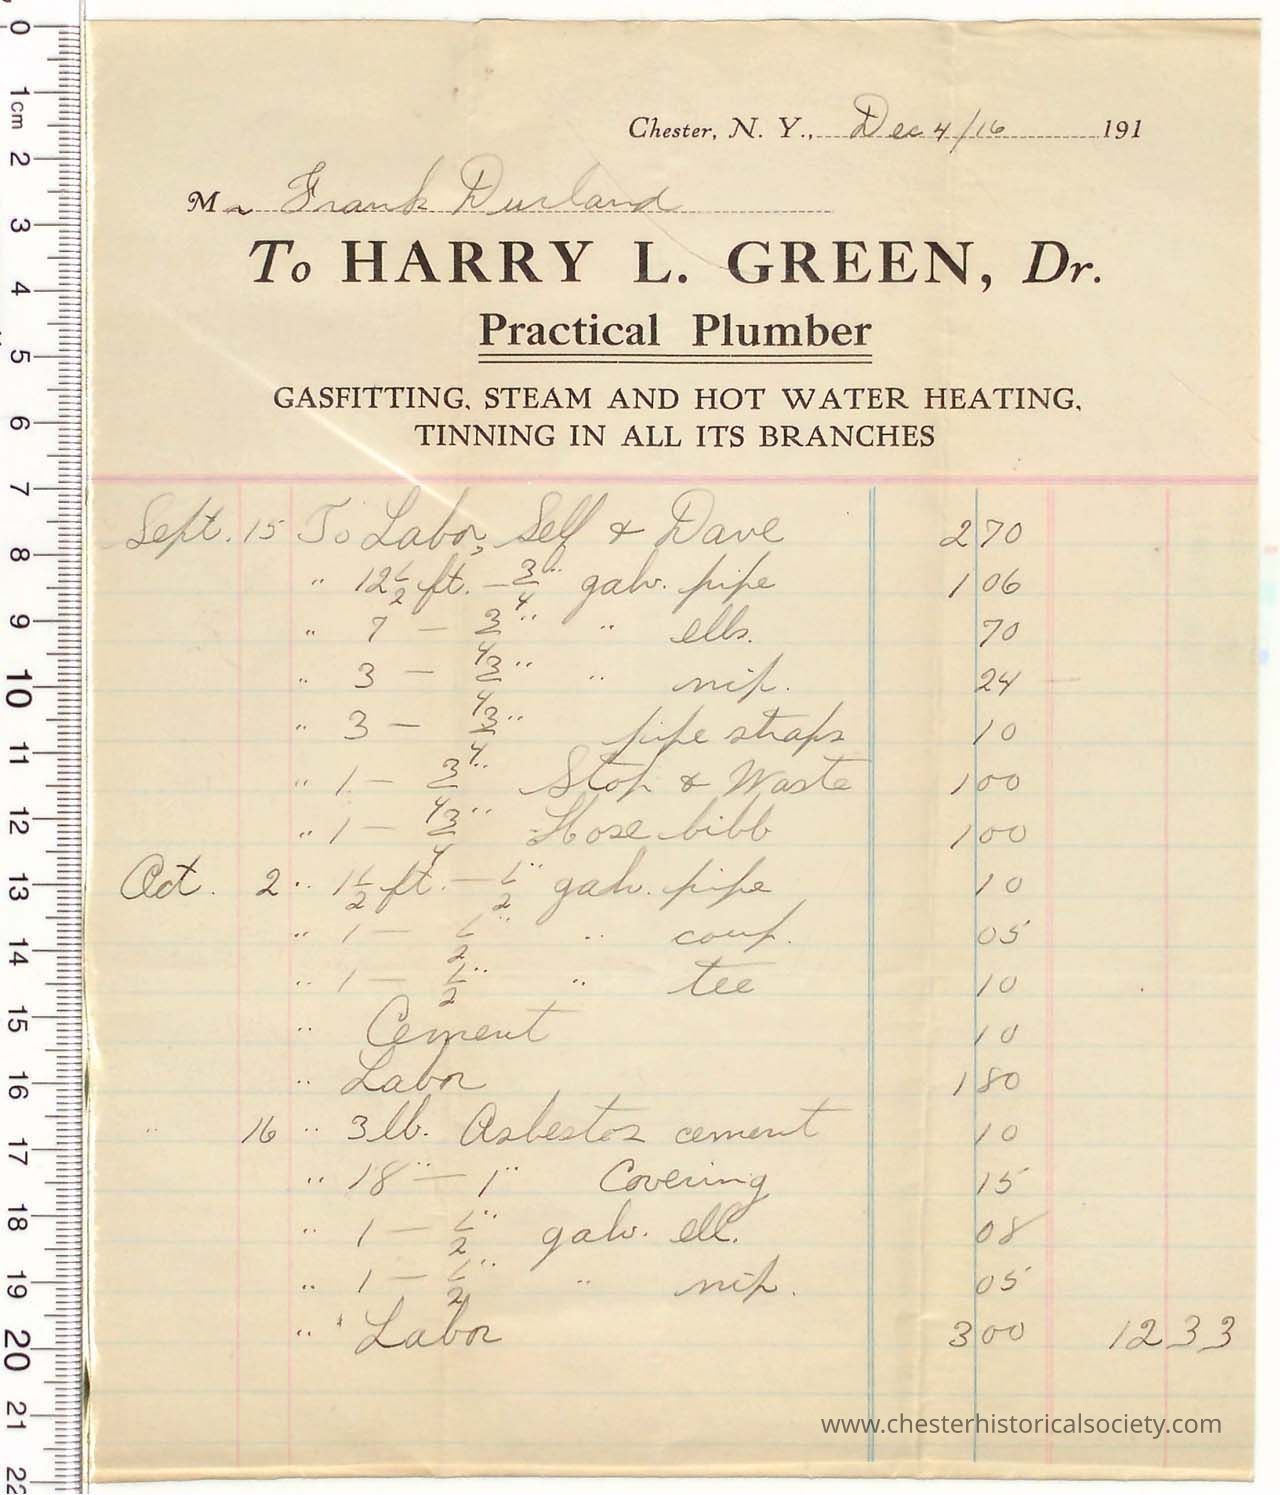 Chester, N. Y., Dec 4/16 191
Mr Frank Durland
To HARRY L. GREEN, Dr.
Practical Plumber
GASFITTING, STEAM AND HOT WATER HEATING,
TINNING IN ALL ITS BRANCHES
Sept. 15 To Labor, Self & Dave 2 70
" 12 1/2 ft. — 3/4" galv. pipe 1 06
" 7 — 3/4" " ells. 70
" 3 — 3/4" " nip. 24
" 3 — 3/4" pipe straps 10
" 1 — 3/4" Stop & Waste 1 00
" 1 — 3/4" Hose bibb 1 00
Oct. 2 " 1 1/2 ft. — 1/2" galv. pipe 10
" 1 — 1/2" " coup. 05
" 1 — 1/2" " tee 10
" Cement 10
" Labor 1 80
" 16 " 3 lb. Asbestos cement 10
" 18" — 1" Covering 15
" 1 — 1/2" galv. ell. 08
" 1 — 1/2" " nip. 05
" Labor 3 00 12 33
www.chesterhistoricalsociety.com
0
1cm
2
3
4
5
6
7
8
9
10
11
12
13
14
15
16
17
18
19
20
21
22